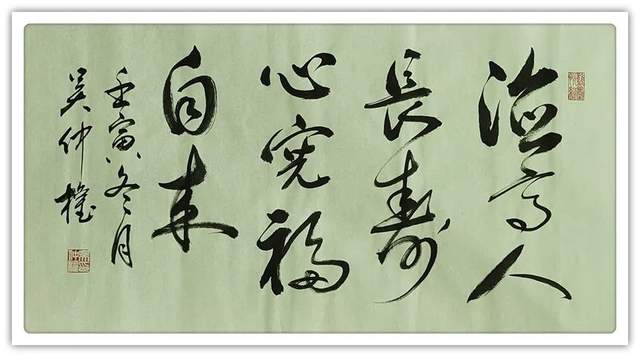 德高人
長壽
心寬福
自来
壬寅冬月
吴仲